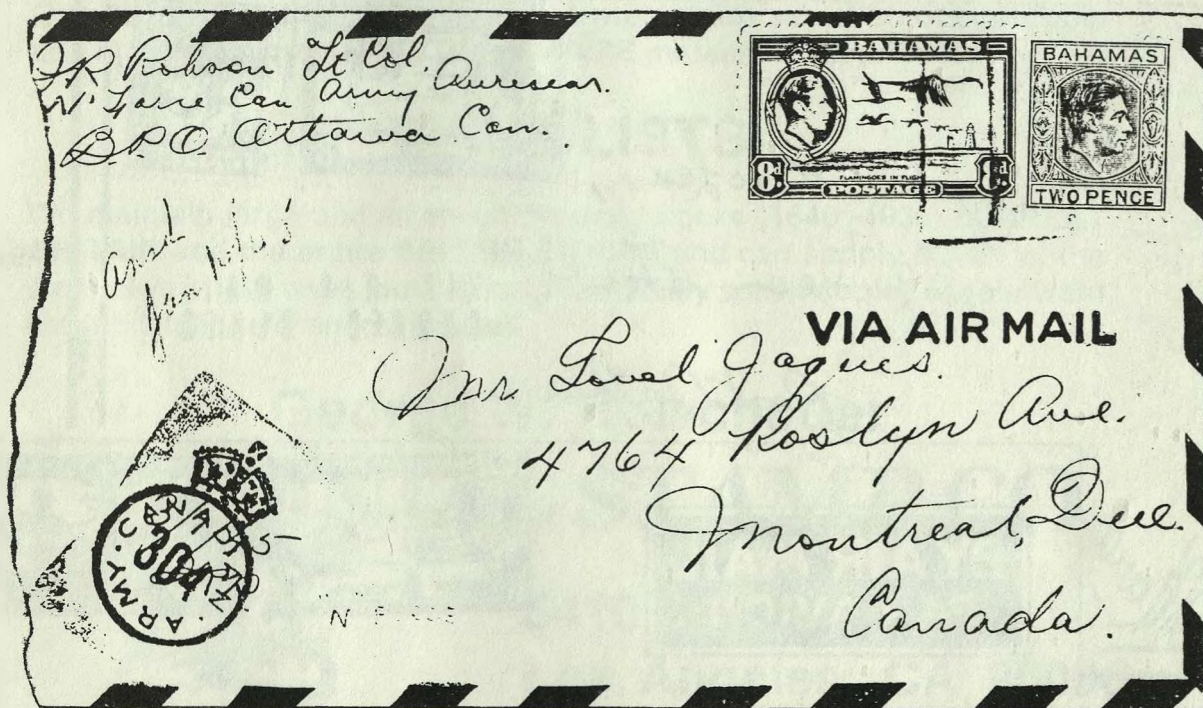 J R Robson Lt Col.
N. Force Can Army Overseas.
B.P.O. Ottawa Can.
BAHAMAS
8d
FLAMINGOES IN FLIGHT
POSTAGE
8d
BAHAMAS
TWO PENCE
VIA AIR MAIL
Mr. Loval Jaques.
4764 Roslyn Ave.
Montreal, Que.
Canada.
ARMY
304
N